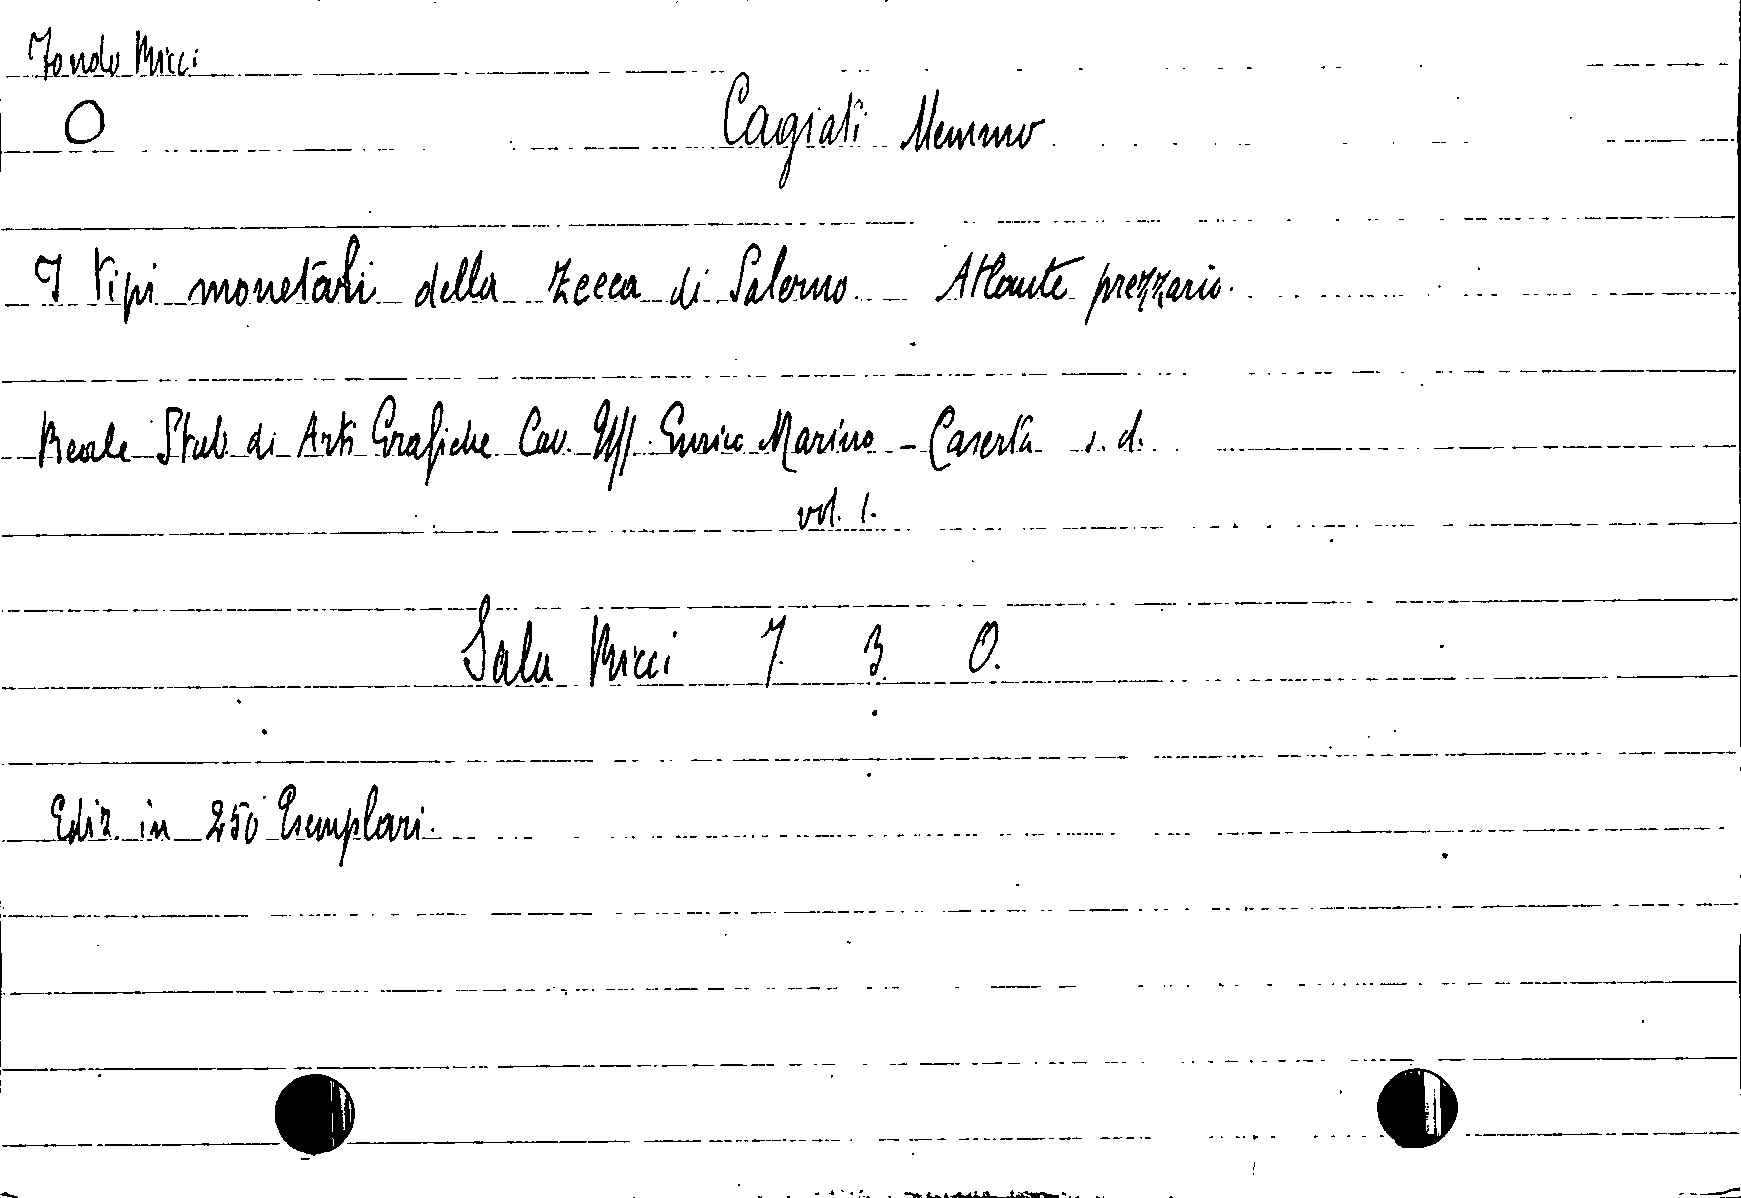 Fondo Ricci
O
Cagiati Memmo
I tipi monetari della zecca di Salerno Atlante prezzario.
Reale Stab di Arti Grafiche Cav. Uff. Enrico Marino - Caserta s. d.
vol. 1.
Sala Ricci 7. 3. O.
Ediz. in 250 Esemplari.